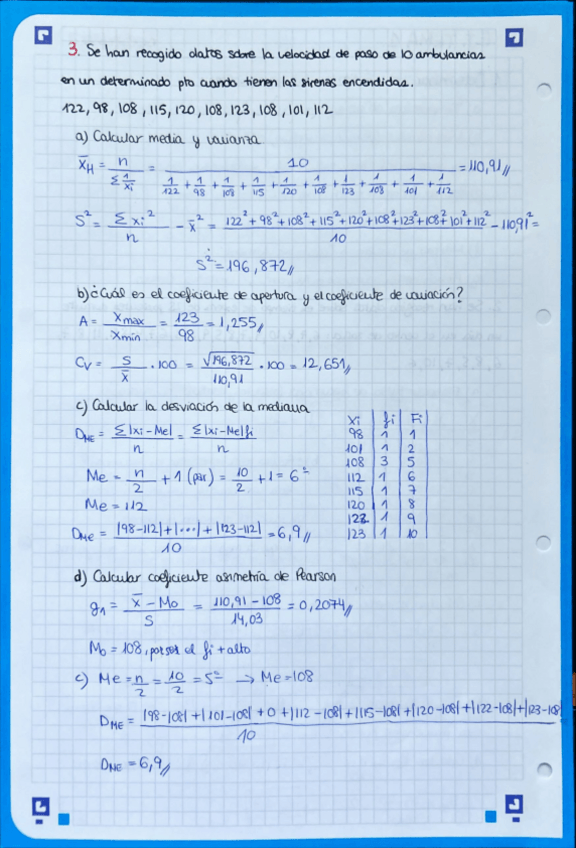 3. Se han recogido datos sobre la velocidad de paso de 10 ambulancias
en un determinado pto cuando tienen las sirenas encendidas.
122, 98, 108, 115, 120, 108, 123, 108, 101, 112
a) Calcular media y varianza
X̄_H = n / Σ 1/xi = 10 / (1/122 + 1/98 + 1/108 + 1/115 + 1/120 + 1/108 + 1/123 + 1/108 + 1/101 + 1/112) = 110,91//
S² = Σ xi² / n − x̄² = (122² + 98² + 108² + 115² + 120² + 108² + 123² + 108² + 101² + 112²) / 10 − 110,91² =
S² = 196,872//
b) ¿Cuál es el coeficiente de apertura y el coeficiente de variación?
A = Xmax / Xmin = 123 / 98 = 1,255//
Cv = S / x̄ · 100 = √196,872 / 110,91 · 100 = 12,651//
c) Calcular la desviación de la mediana
D_ME = Σ|xi − Me| / n = Σ|xi − Me|fi / n
Me = n/2 + 1 (par) = 10/2 + 1 = 6º
Me = 112
D_ME = (|98−112| + |...| + |123−112|) / 10 = 6,9//
Xi | fi | Fi
98 | 1 | 1
101 | 1 | 2
108 | 3 | 5
112 | 1 | 6
115 | 1 | 7
120 | 1 | 8
122 | 1 | 9
123 | 1 | 10
d) Calcular coeficiente asimetría de Pearson
g₁ = (x̄ − Mo) / S = (110,91 − 108) / 14,03 = 0,2074//
Mo = 108, por ser el fi + alto
c) Me = n/2 = 10/2 = 5º → Me = 108
D_ME = (|98−108| + |101−108| + 0 + |112−108| + |115−108| + |120−108| + |122−108| + |123−108|) / 10
D_ME = 6,9//